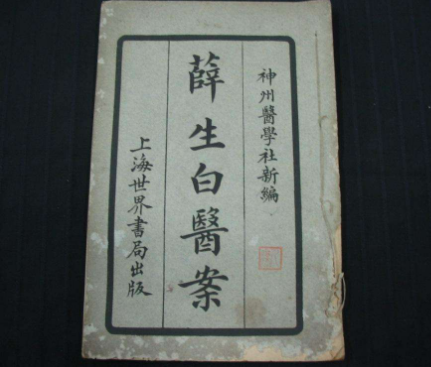 神州醫學社新編
薛生白醫案
上海世界書局出版